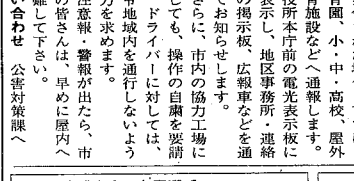 育園、小・中・高校、屋外
育施設などへ通報します。
役所本庁前の電光表示板に
表示し、地区事務所・連絡
の掲示板、広報車などを通
てお知らせします。
さらに、市内の協力工場に
しても、操作の自粛を要請
ドライバーに対しては、
令地域内を通行しないよう
力を求めます。
注意報・警報が出たら、市
の皆さんは、早めに屋内へ
難して下さい。
い合わせ 公害対策課へ